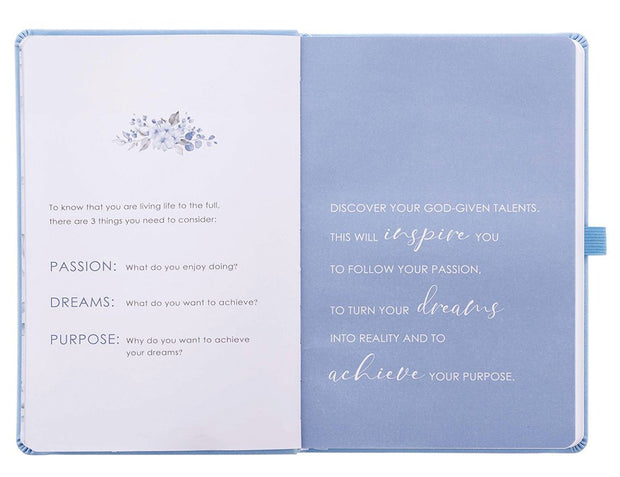 To know that you are living life to the full,
there are 3 things you need to consider:
PASSION: What do you enjoy doing?
DREAMS: What do you want to achieve?
PURPOSE: Why do you want to achieve
your dreams?
DISCOVER YOUR GOD-GIVEN TALENTS.
THIS WILL inspire YOU
TO FOLLOW YOUR PASSION,
TO TURN YOUR dreams
INTO REALITY AND TO
achieve YOUR PURPOSE.